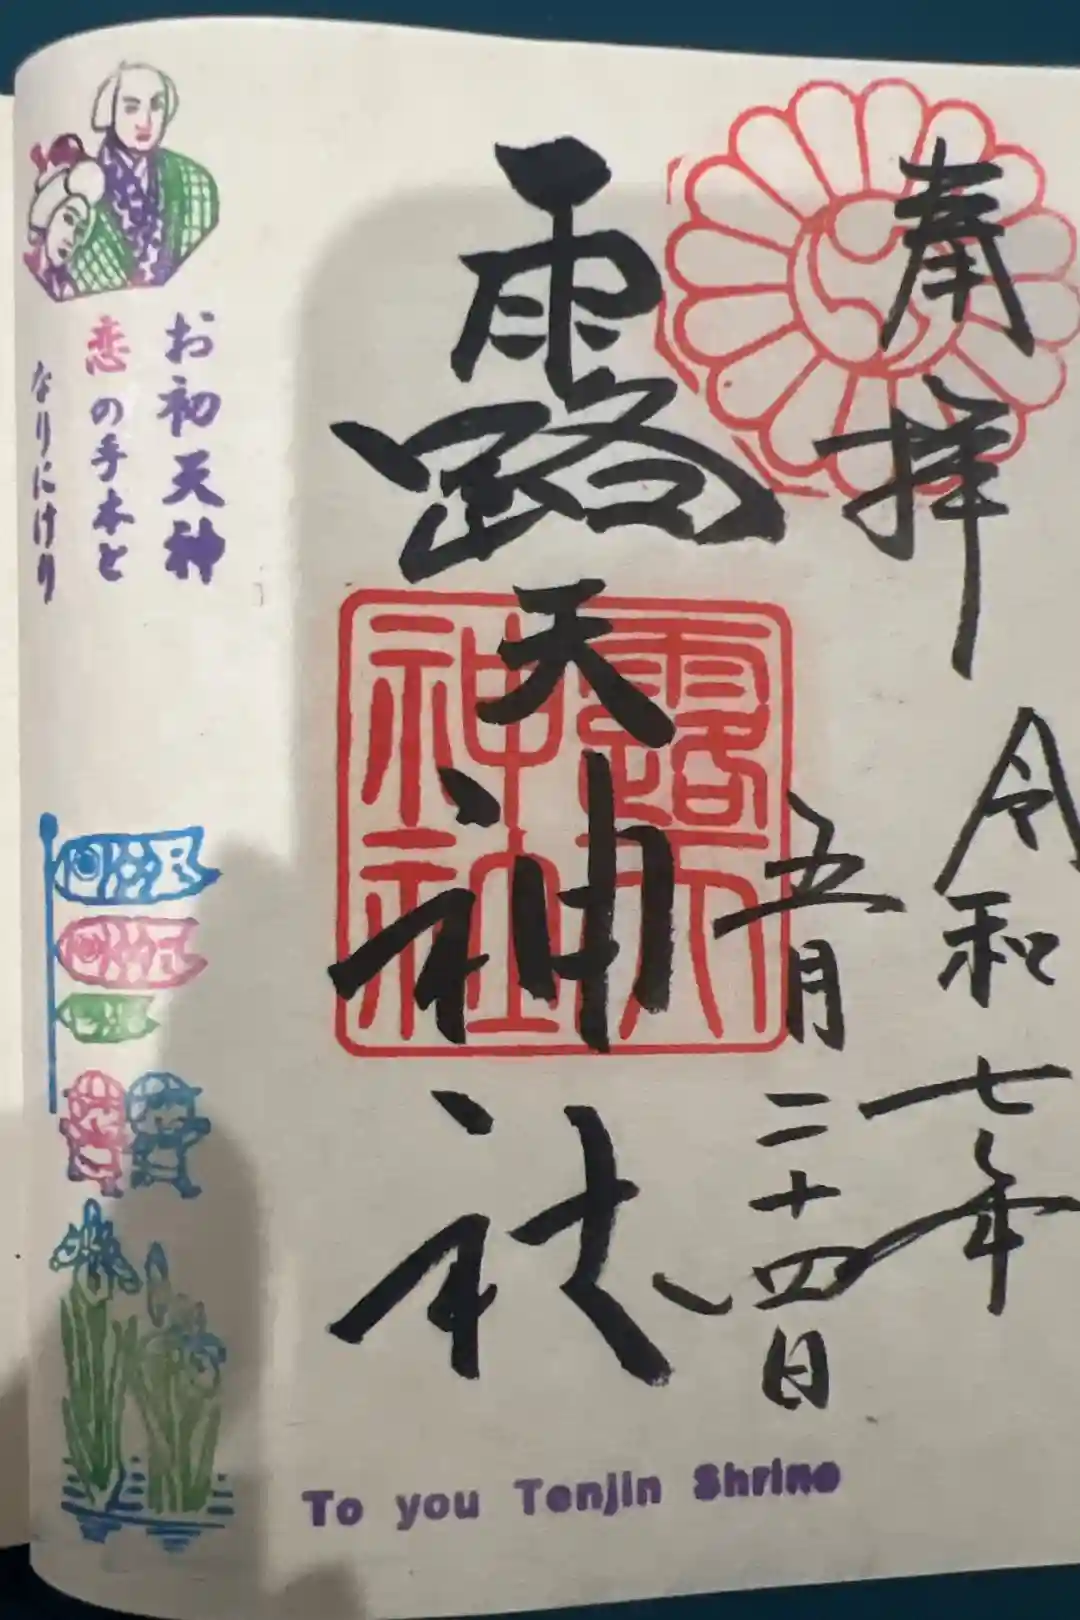 奉拝
令和七年
五月二十四日
露天神社
露天
神社
お初天神
恋の手本と
なりにけり
To you Tenjin Shrine